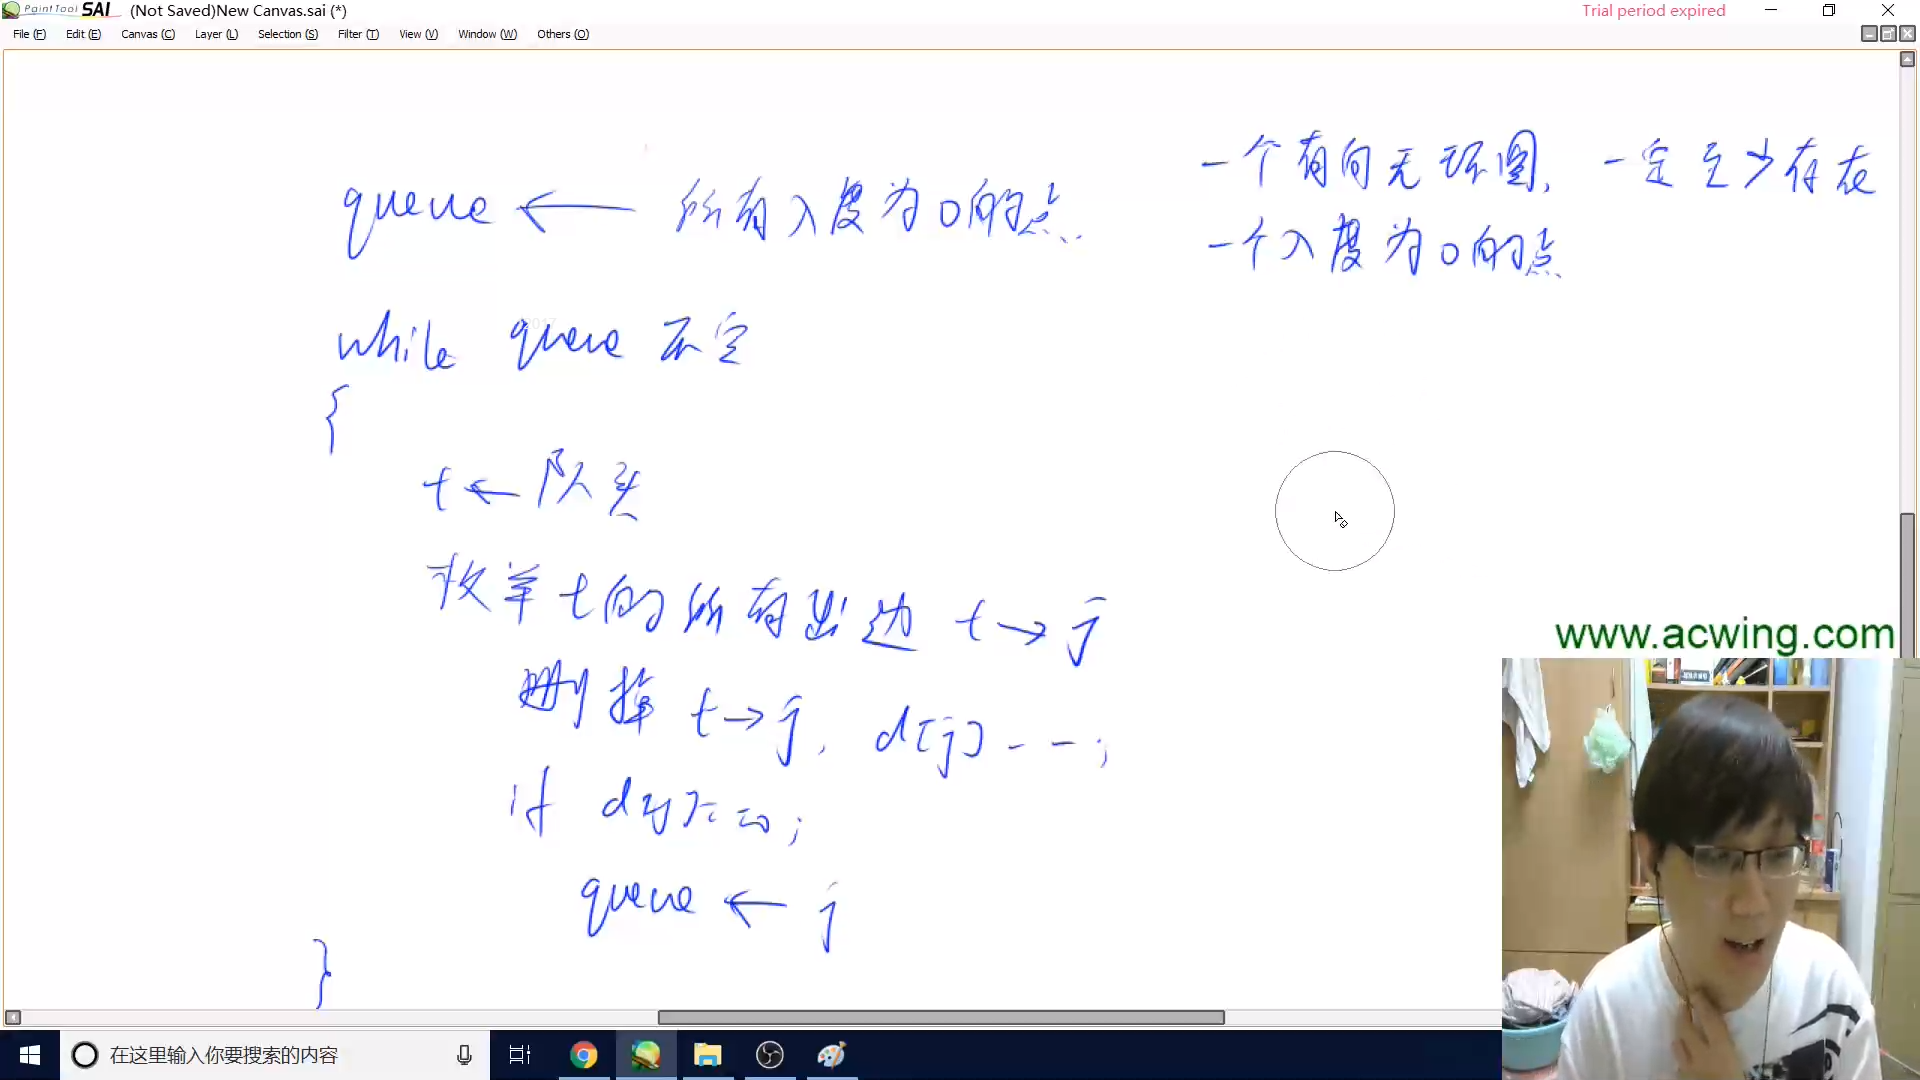 PaintTool SAI (Not Saved)New Canvas.sai (*) Trial period expired
File (F) Edit (E) Canvas (C) Layer (L) Selection (S) Filter (T) View (V) Window (W) Others (O)
queue ← 所有入度为0的点
一个有向无环图, 一定至少存在
一个入度为0的点
while queue 不空
{
t ← 队头
枚举 t 的所有出边 t → j
删掉 t → j, d[j] --;
if d[j] == 0;
queue ← j
}
www.acwing.com
在这里输入你要搜索的内容